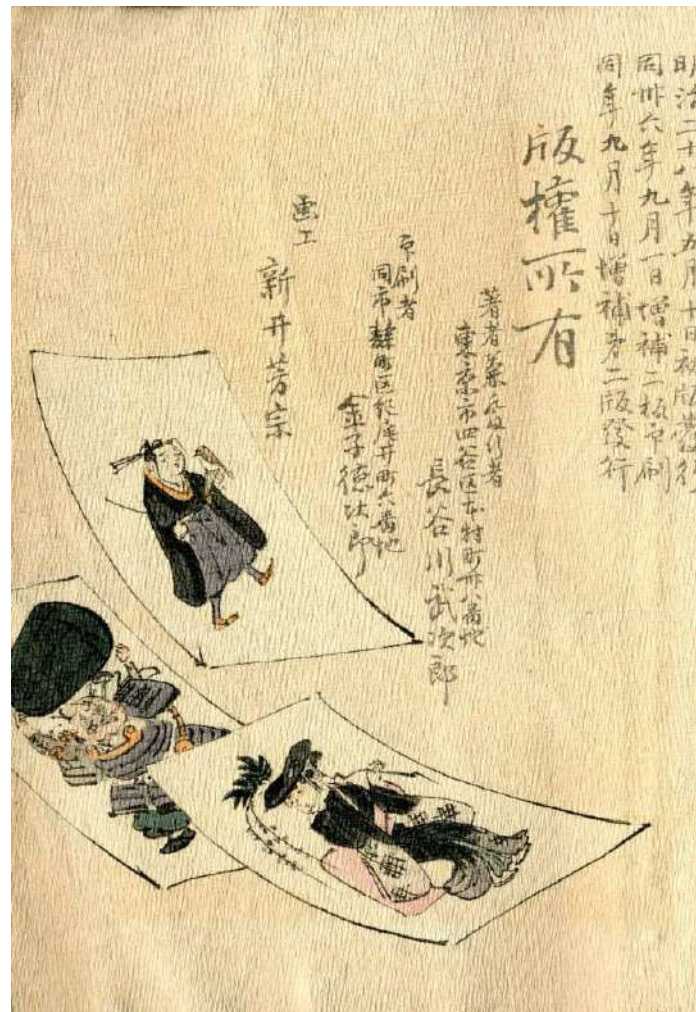 明治二十八年五月十日初版發行
同卅六年九月一日增補二板印刷
同年九月十日增補第二版發行
版權所有
著者兼發行者
東京市四谷區本村町卅八番地
長谷川武次郎
印刷者
同市麹町区飯田町六番地
金子徳次郎
畫工
新井芳宗